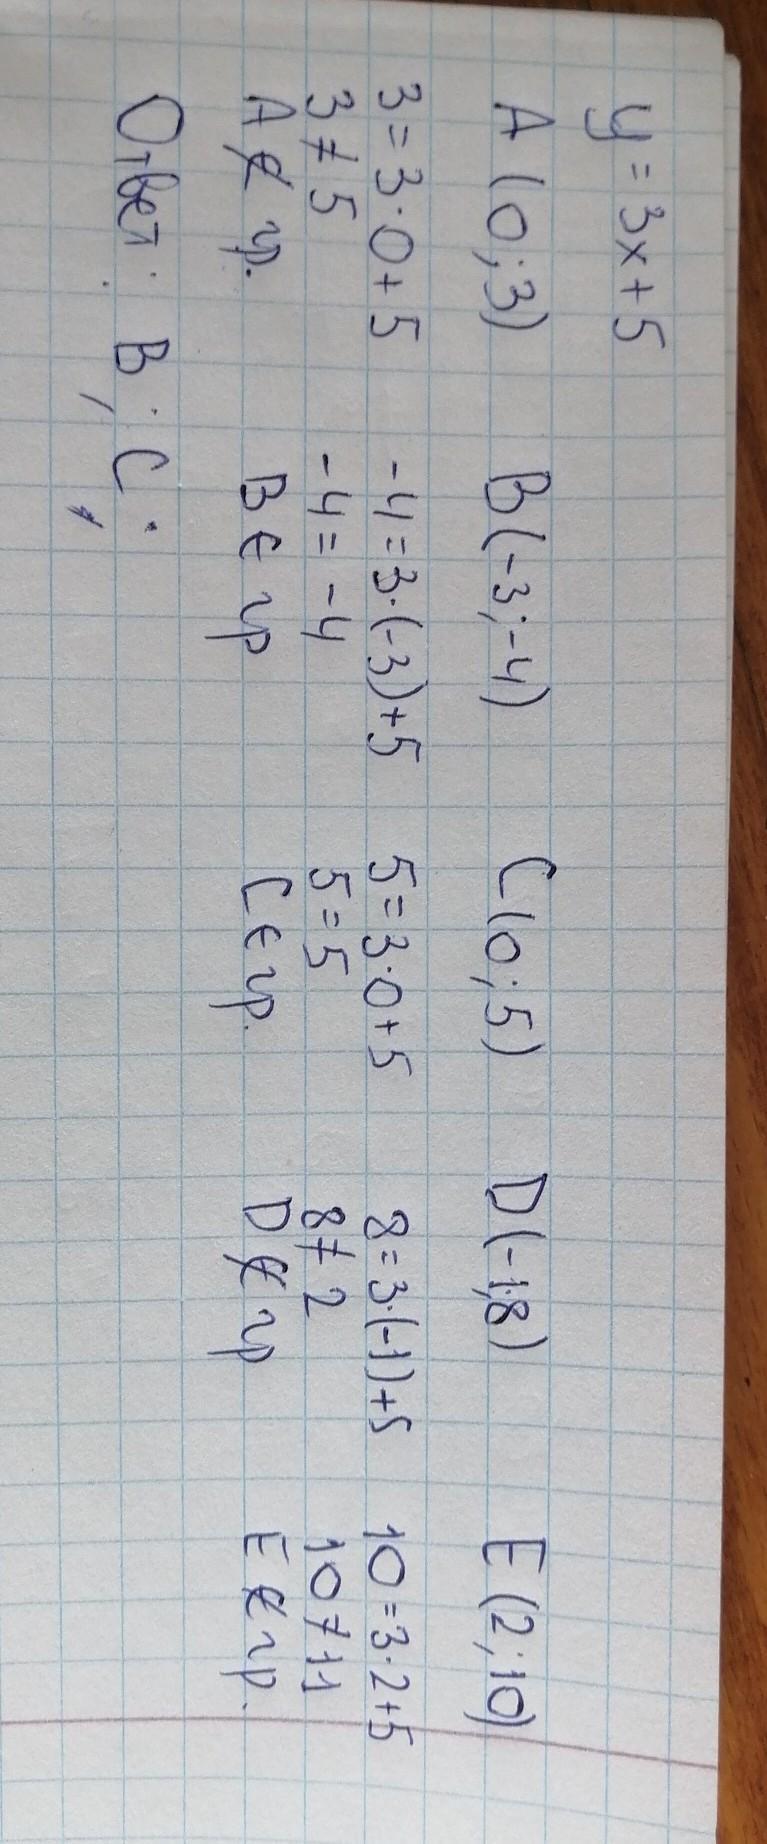 y = 3x + 5
A (0; 3) B(-3; -4) C (0; 5) D(-1; 8) E (2; 10)
3 = 3·0 + 5 -4 = 3·(-3)+5 5 = 3·0 + 5 8 = 3·(-1)+5 10 = 3·2+5
3 ≠ 5 -4 = -4 5 = 5 8 ≠ 2 10 ≠ 11
A ∉ гр. B ∈ гр C ∈ гр. D ∉ гр E ∉ гр.
Ответ: B; C;